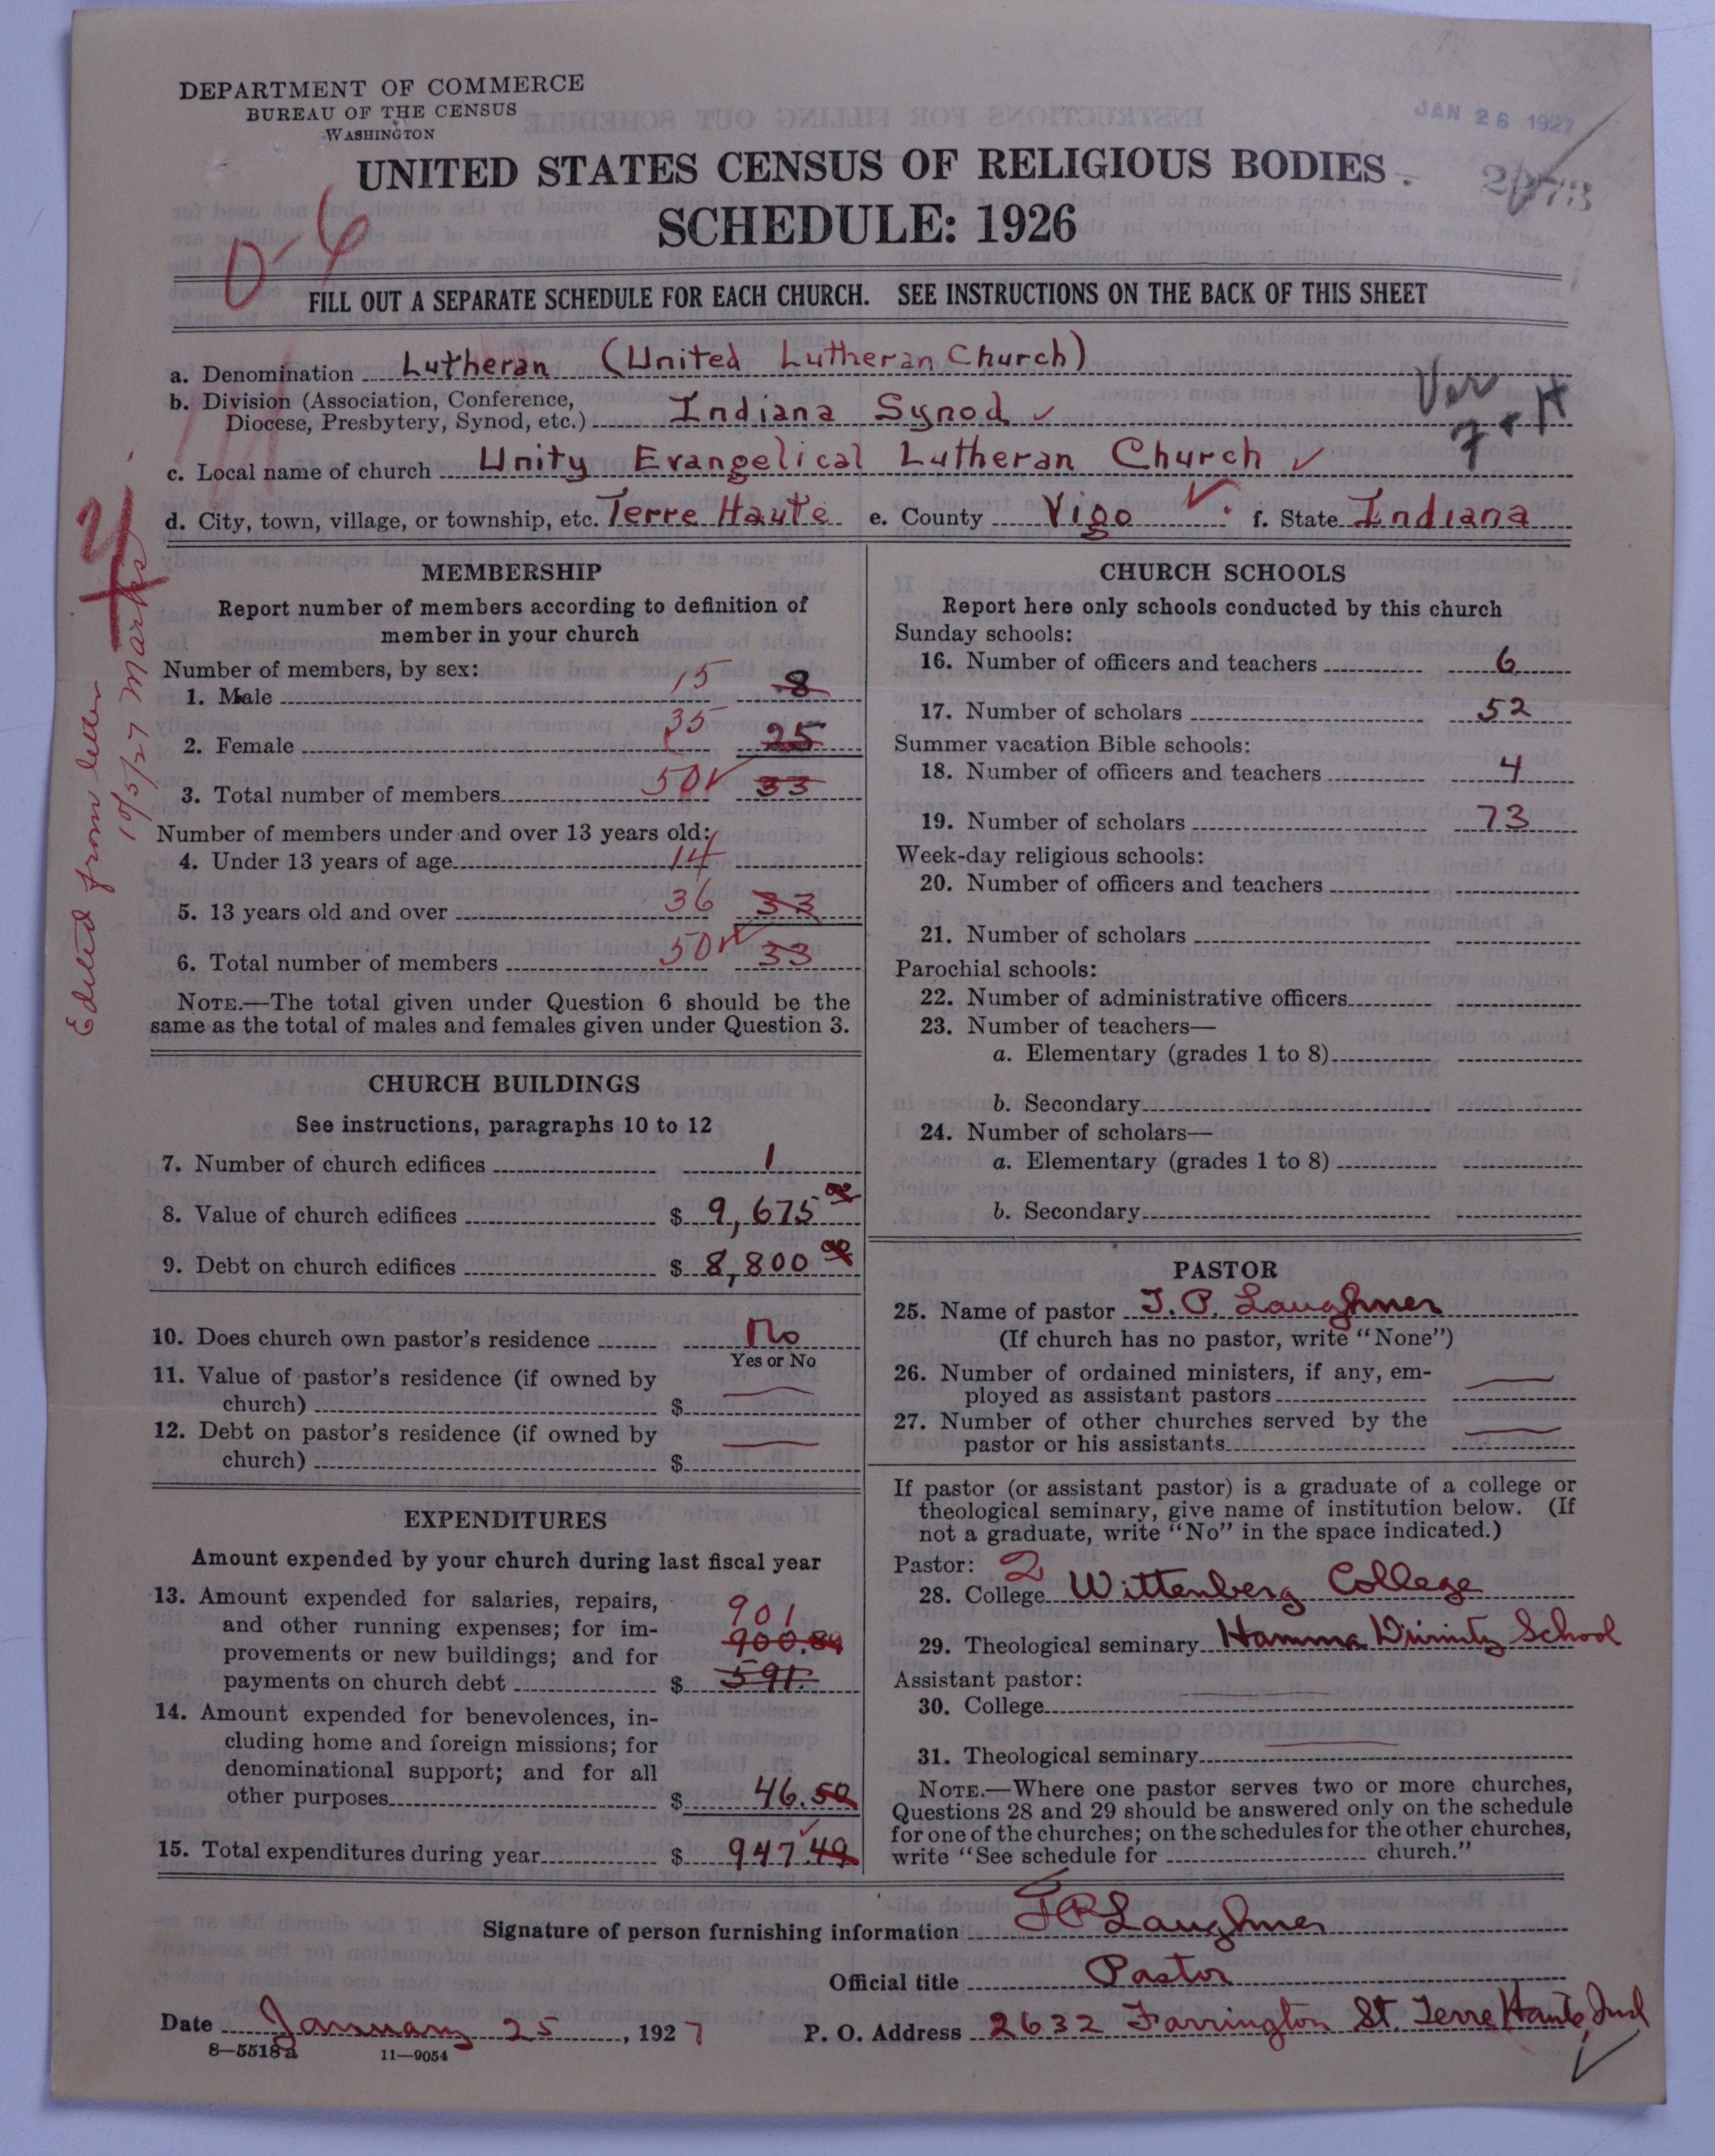 DEPARTMENT OF COMMERCE
BUREAU OF THE CENSUS
WASHINGTON
JAN 26 1927
UNITED STATES CENSUS OF RELIGIOUS BODIES
SCHEDULE: 1926
0-6
FILL OUT A SEPARATE SCHEDULE FOR EACH CHURCH. SEE INSTRUCTIONS ON THE BACK OF THIS SHEET
a. Denomination Lutheran (United Lutheran Church)
b. Division (Association, Conference,
Diocese, Presbytery, Synod, etc.) Indiana Synod ✓
Ver
c. Local name of church Unity Evangelical Lutheran Church ✓
d. City, town, village, or township, etc. Terre Haute e. County Vigo f. State Indiana
Edited from letter
10/5/27 Marks
MEMBERSHIP
Report number of members according to definition of
member in your church
Number of members, by sex:
1. Male 15 8
2. Female 35 25
3. Total number of members 50 ✓ 33
Number of members under and over 13 years old:
4. Under 13 years of age 14
5. 13 years old and over 36 33
6. Total number of members 50 ✓ 33
NOTE.—The total given under Question 6 should be the
same as the total of males and females given under Question 3.
CHURCH BUILDINGS
See instructions, paragraphs 10 to 12
7. Number of church edifices 1
8. Value of church edifices $ 9,675 00
9. Debt on church edifices $ 8,800 00
10. Does church own pastor's residence No
Yes or No
11. Value of pastor's residence (if owned by
church) $
12. Debt on pastor's residence (if owned by
church) $
EXPENDITURES
Amount expended by your church during last fiscal year
13. Amount expended for salaries, repairs,
and other running expenses; for im- 901
provements or new buildings; and for 900.89
payments on church debt $ 591.
14. Amount expended for benevolences, in-
cluding home and foreign missions; for
denominational support; and for all
other purposes $ 46.50
15. Total expenditures during year $ 947.49
CHURCH SCHOOLS
Report here only schools conducted by this church
Sunday schools:
16. Number of officers and teachers 6
17. Number of scholars 52
Summer vacation Bible schools:
18. Number of officers and teachers 4
19. Number of scholars 73
Week-day religious schools:
20. Number of officers and teachers
21. Number of scholars
Parochial schools:
22. Number of administrative officers
23. Number of teachers—
a. Elementary (grades 1 to 8)
b. Secondary
24. Number of scholars—
a. Elementary (grades 1 to 8)
b. Secondary
PASTOR
25. Name of pastor J. P. Laughner
(If church has no pastor, write "None")
26. Number of ordained ministers, if any, em-
ployed as assistant pastors
27. Number of other churches served by the
pastor or his assistants
If pastor (or assistant pastor) is a graduate of a college or
theological seminary, give name of institution below. (If
not a graduate, write "No" in the space indicated.)
Pastor: 2
28. College Wittenberg College
29. Theological seminary Hamma Divinity School
Assistant pastor:
30. College
31. Theological seminary
NOTE.—Where one pastor serves two or more churches,
Questions 28 and 29 should be answered only on the schedule
for one of the churches; on the schedules for the other churches,
write "See schedule for church."
Signature of person furnishing information J P Laughner
Official title Pastor
Date January 25, 1927 P. O. Address 2632 Farrington St. Terre Haute, Ind
8—5518a 11—9054